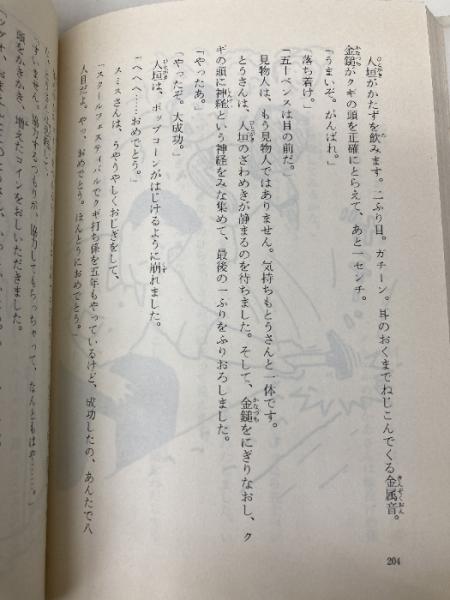 人垣がかたずを飲みます。二ふり目。ガチーン。耳のおくまでねじこんでくる金属音。
金鎚がクギの頭を正確にとらえて、あと一センチ。
「うまいぞ。がんばれ。」
「落ち着け。」
「五十ペンスは目の前だ。」
見物人は、もう見物人ではありません。気持ちもとうさんと一体です。
とうさんは、人垣のざわめきが静まるのを待ちました。そして、金鎚をにぎりなおし、ク
ギの頭に神経という神経をみな集めて、最後の一ふりをふりおろしました。
「やったあ。」
「やったぞ。大成功。」
人垣は、ポップコーンがはじけるように崩れました。
「へへへ……おめでとう。」
スミスさんは、うやうやしくおじぎをして、
「スクールフェスティバルでクギ打ち係を五年もやっているけど、成功したの、あんたで八
人目だよ。やっ、おめでとう。ほんとうにおめでとう。」
204
「すいません。協力するつもりが、協力してもらっちゃって、なんともはや……。」
頭をかきかき、増えたコインをおしいただきました。